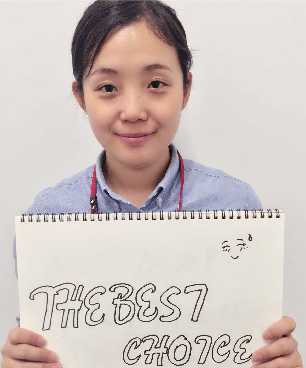 THE BEST
CHOICE